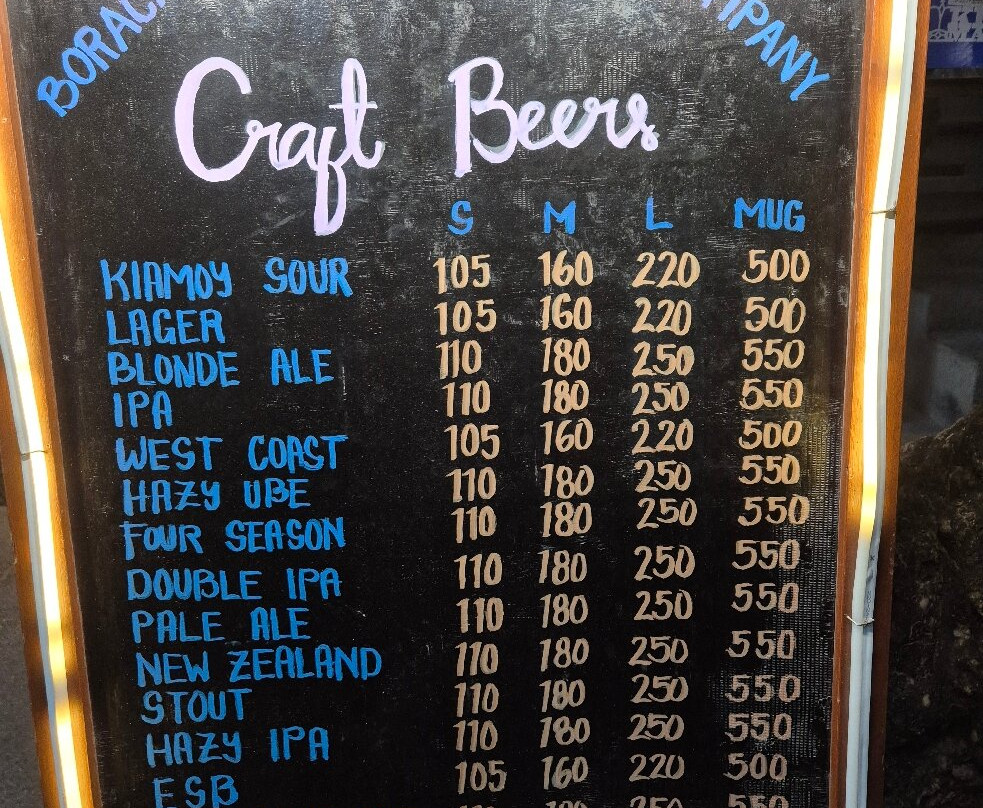 BORAC MPANY
Craft Beers
S M L MUG
KIAMOY SOUR 105 160 220 500
LAGER 105 160 220 500
BLONDE ALE 110 180 250 550
IPA 110 180 250 550
WEST COAST 105 160 220 500
HAZY UBE 110 180 250 550
FOUR SEASON 110 180 250 550
DOUBLE IPA 110 180 250 550
PALE ALE 110 180 250 550
NEW ZEALAND 110 180 250 550
STOUT 110 180 250 550
HAZY IPA 110 180 250 550
ESB 105 160 220 500